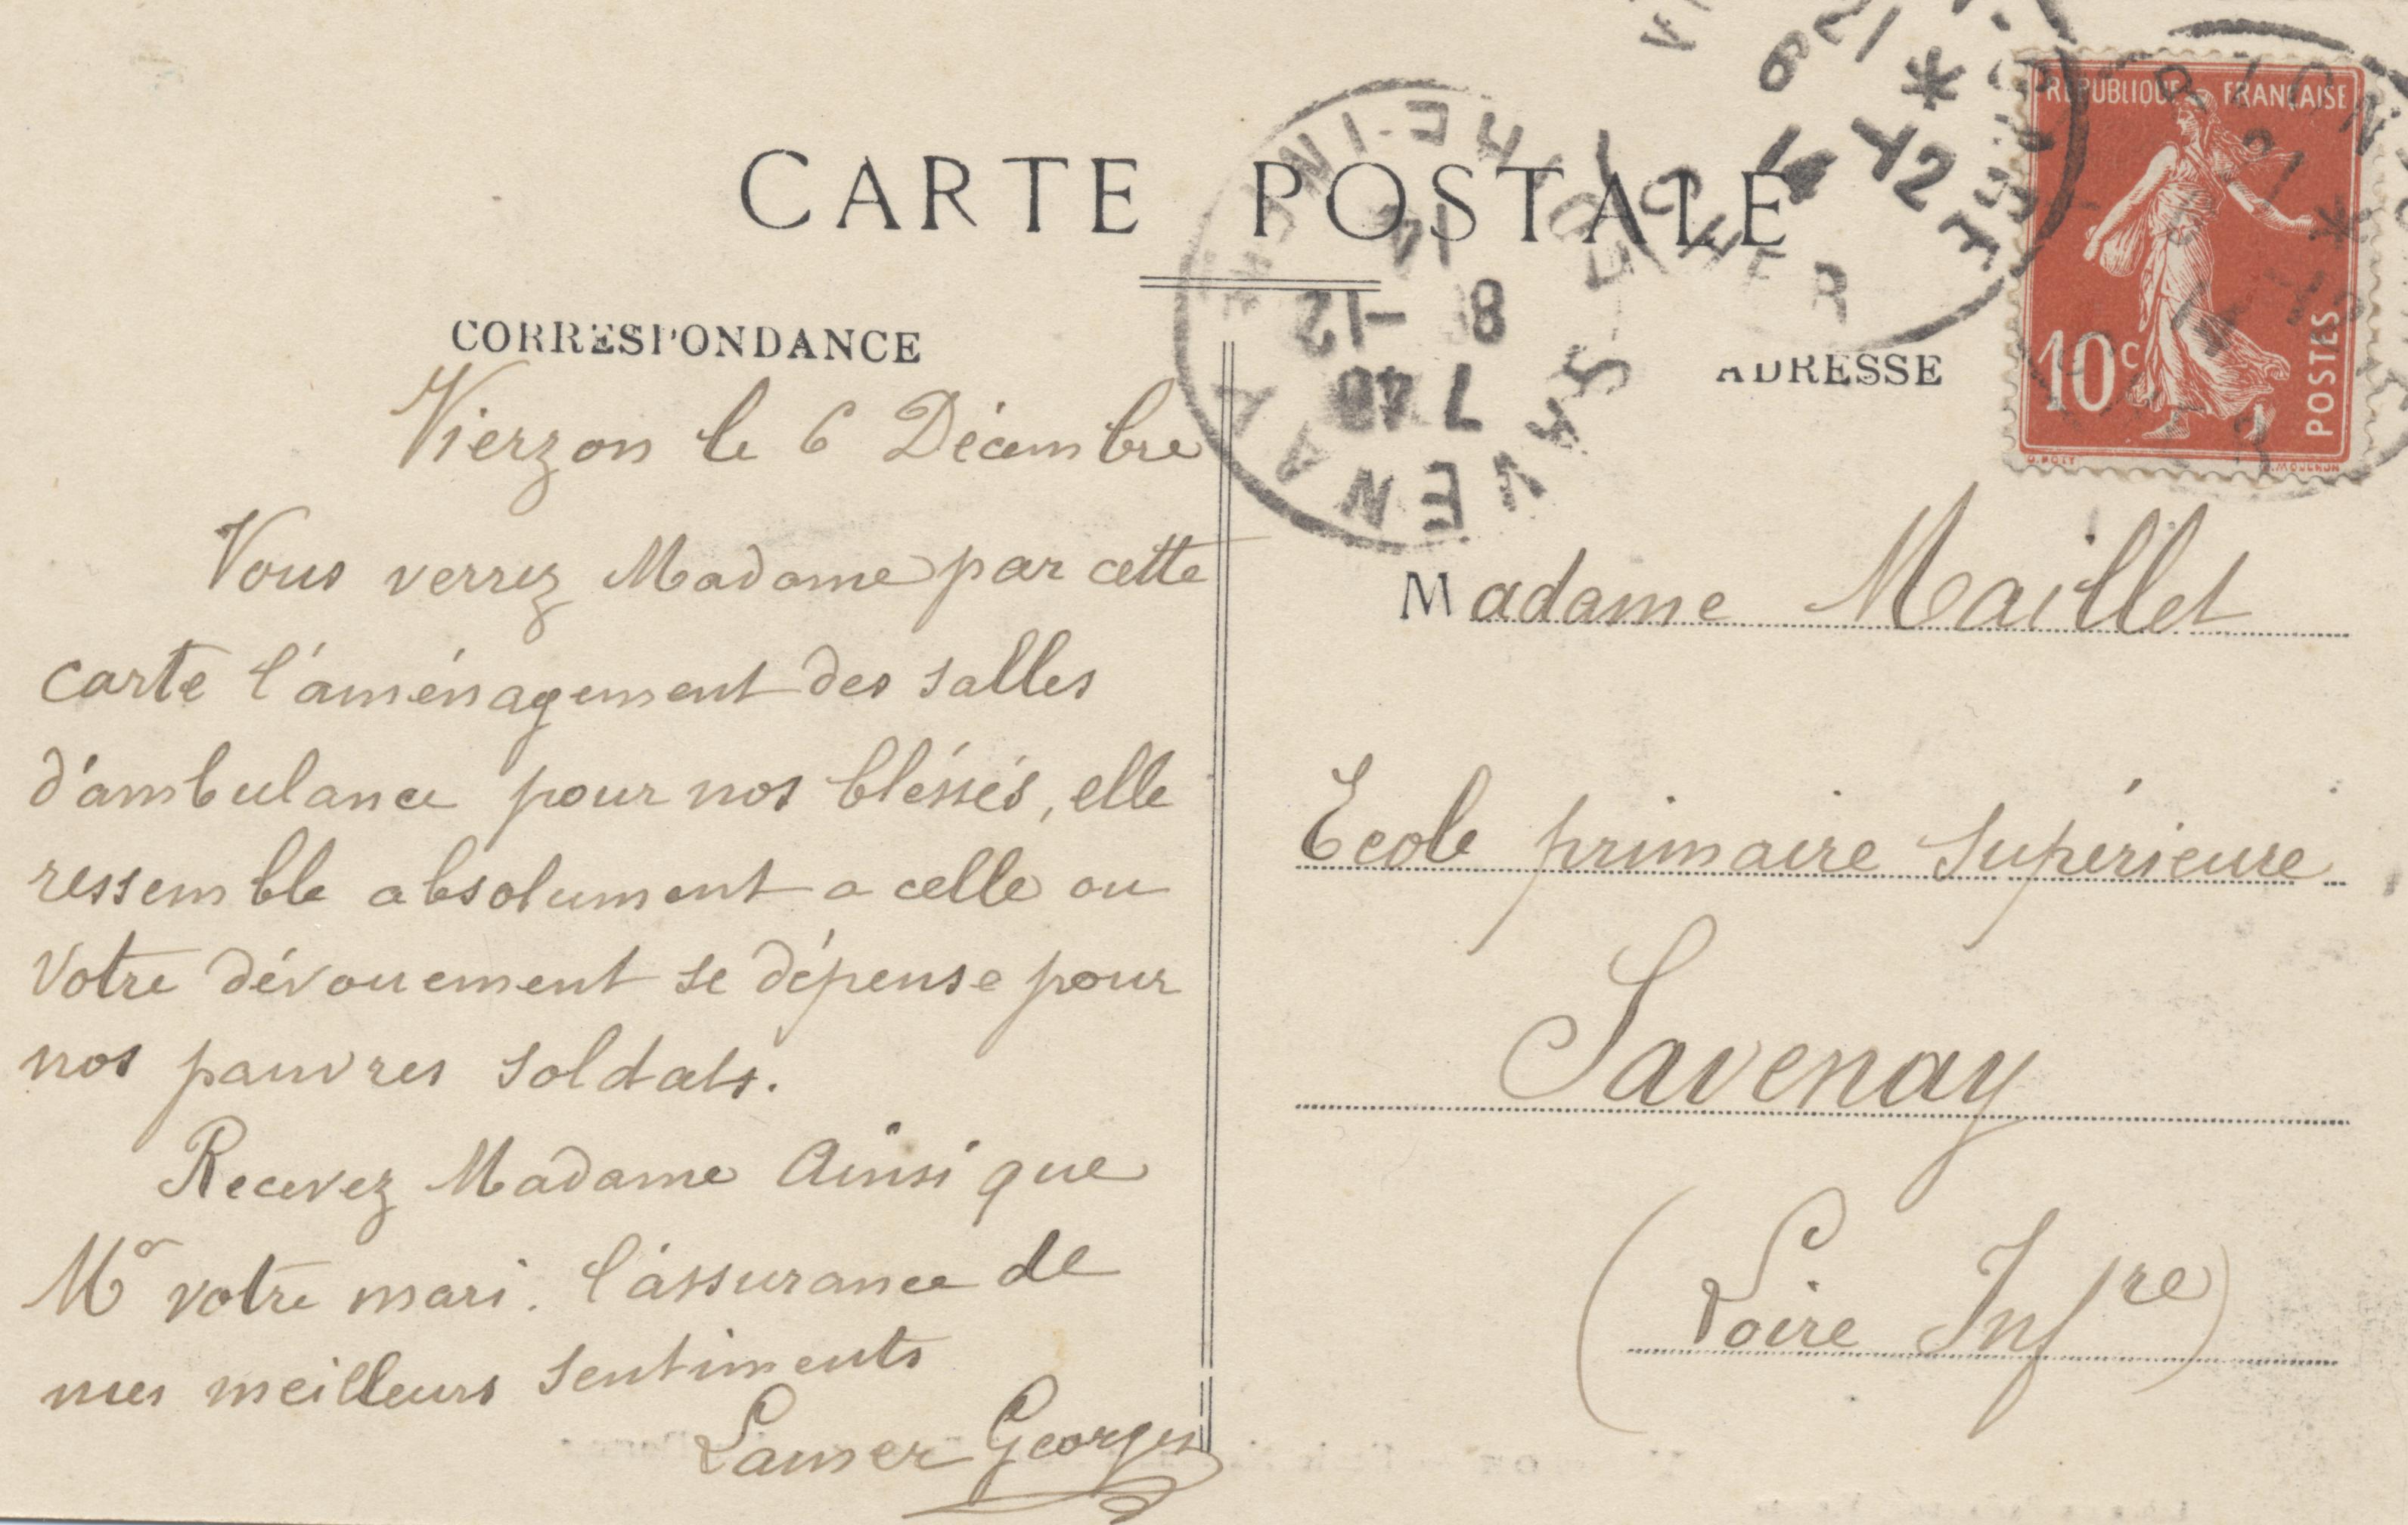 CARTE POSTALE
CORRESPONDANCE
Vierzon le 6 Décembre
Vous verrez Madame par cette
carte l'aménagement des salles
d'ambulance pour nos bléssés, elle
ressemble absolument a celle ou
votre dévouement se dépense pour
nos pauvres soldats.
Recevez Madame Ainsi que
Mr votre mari. l'assurance de
mes meilleurs sentiments
Georges
ADRESSE
Madame Maillet
Ecole primaire Supérieure
Savenay
(Loire Infre)
REPUBLIQUE FRANÇAISE
10c
POSTES
SAVENAY
LOIRE-INFRE
7 40
8 -12
14
21 *
6 - 12
14
CHER